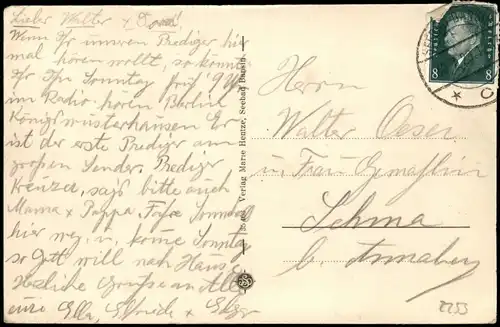 Lieber Walter +
Wenn Ihr unseren Prediger hier
mal hören wollt, so könnt
Ihr Ihn Sonntag früh 9
im Radio hören Berlin
Königswusterhausen Er
ist der erste Prediger am
großen Sender. Prediger
Kreuzer, sags bitte auch
Mama + Pappa.
hier weg, u. Sonntag
so Gott will nach Hause
Herzliche Grüsse an Alle
eure Ella, Elfriede +
Verlag Marie Hentze, Seebad Bansin.
8 8
Herrn
Walter Oeser
u Frau Gemahlin
Sehma
b. Annaberg
2253